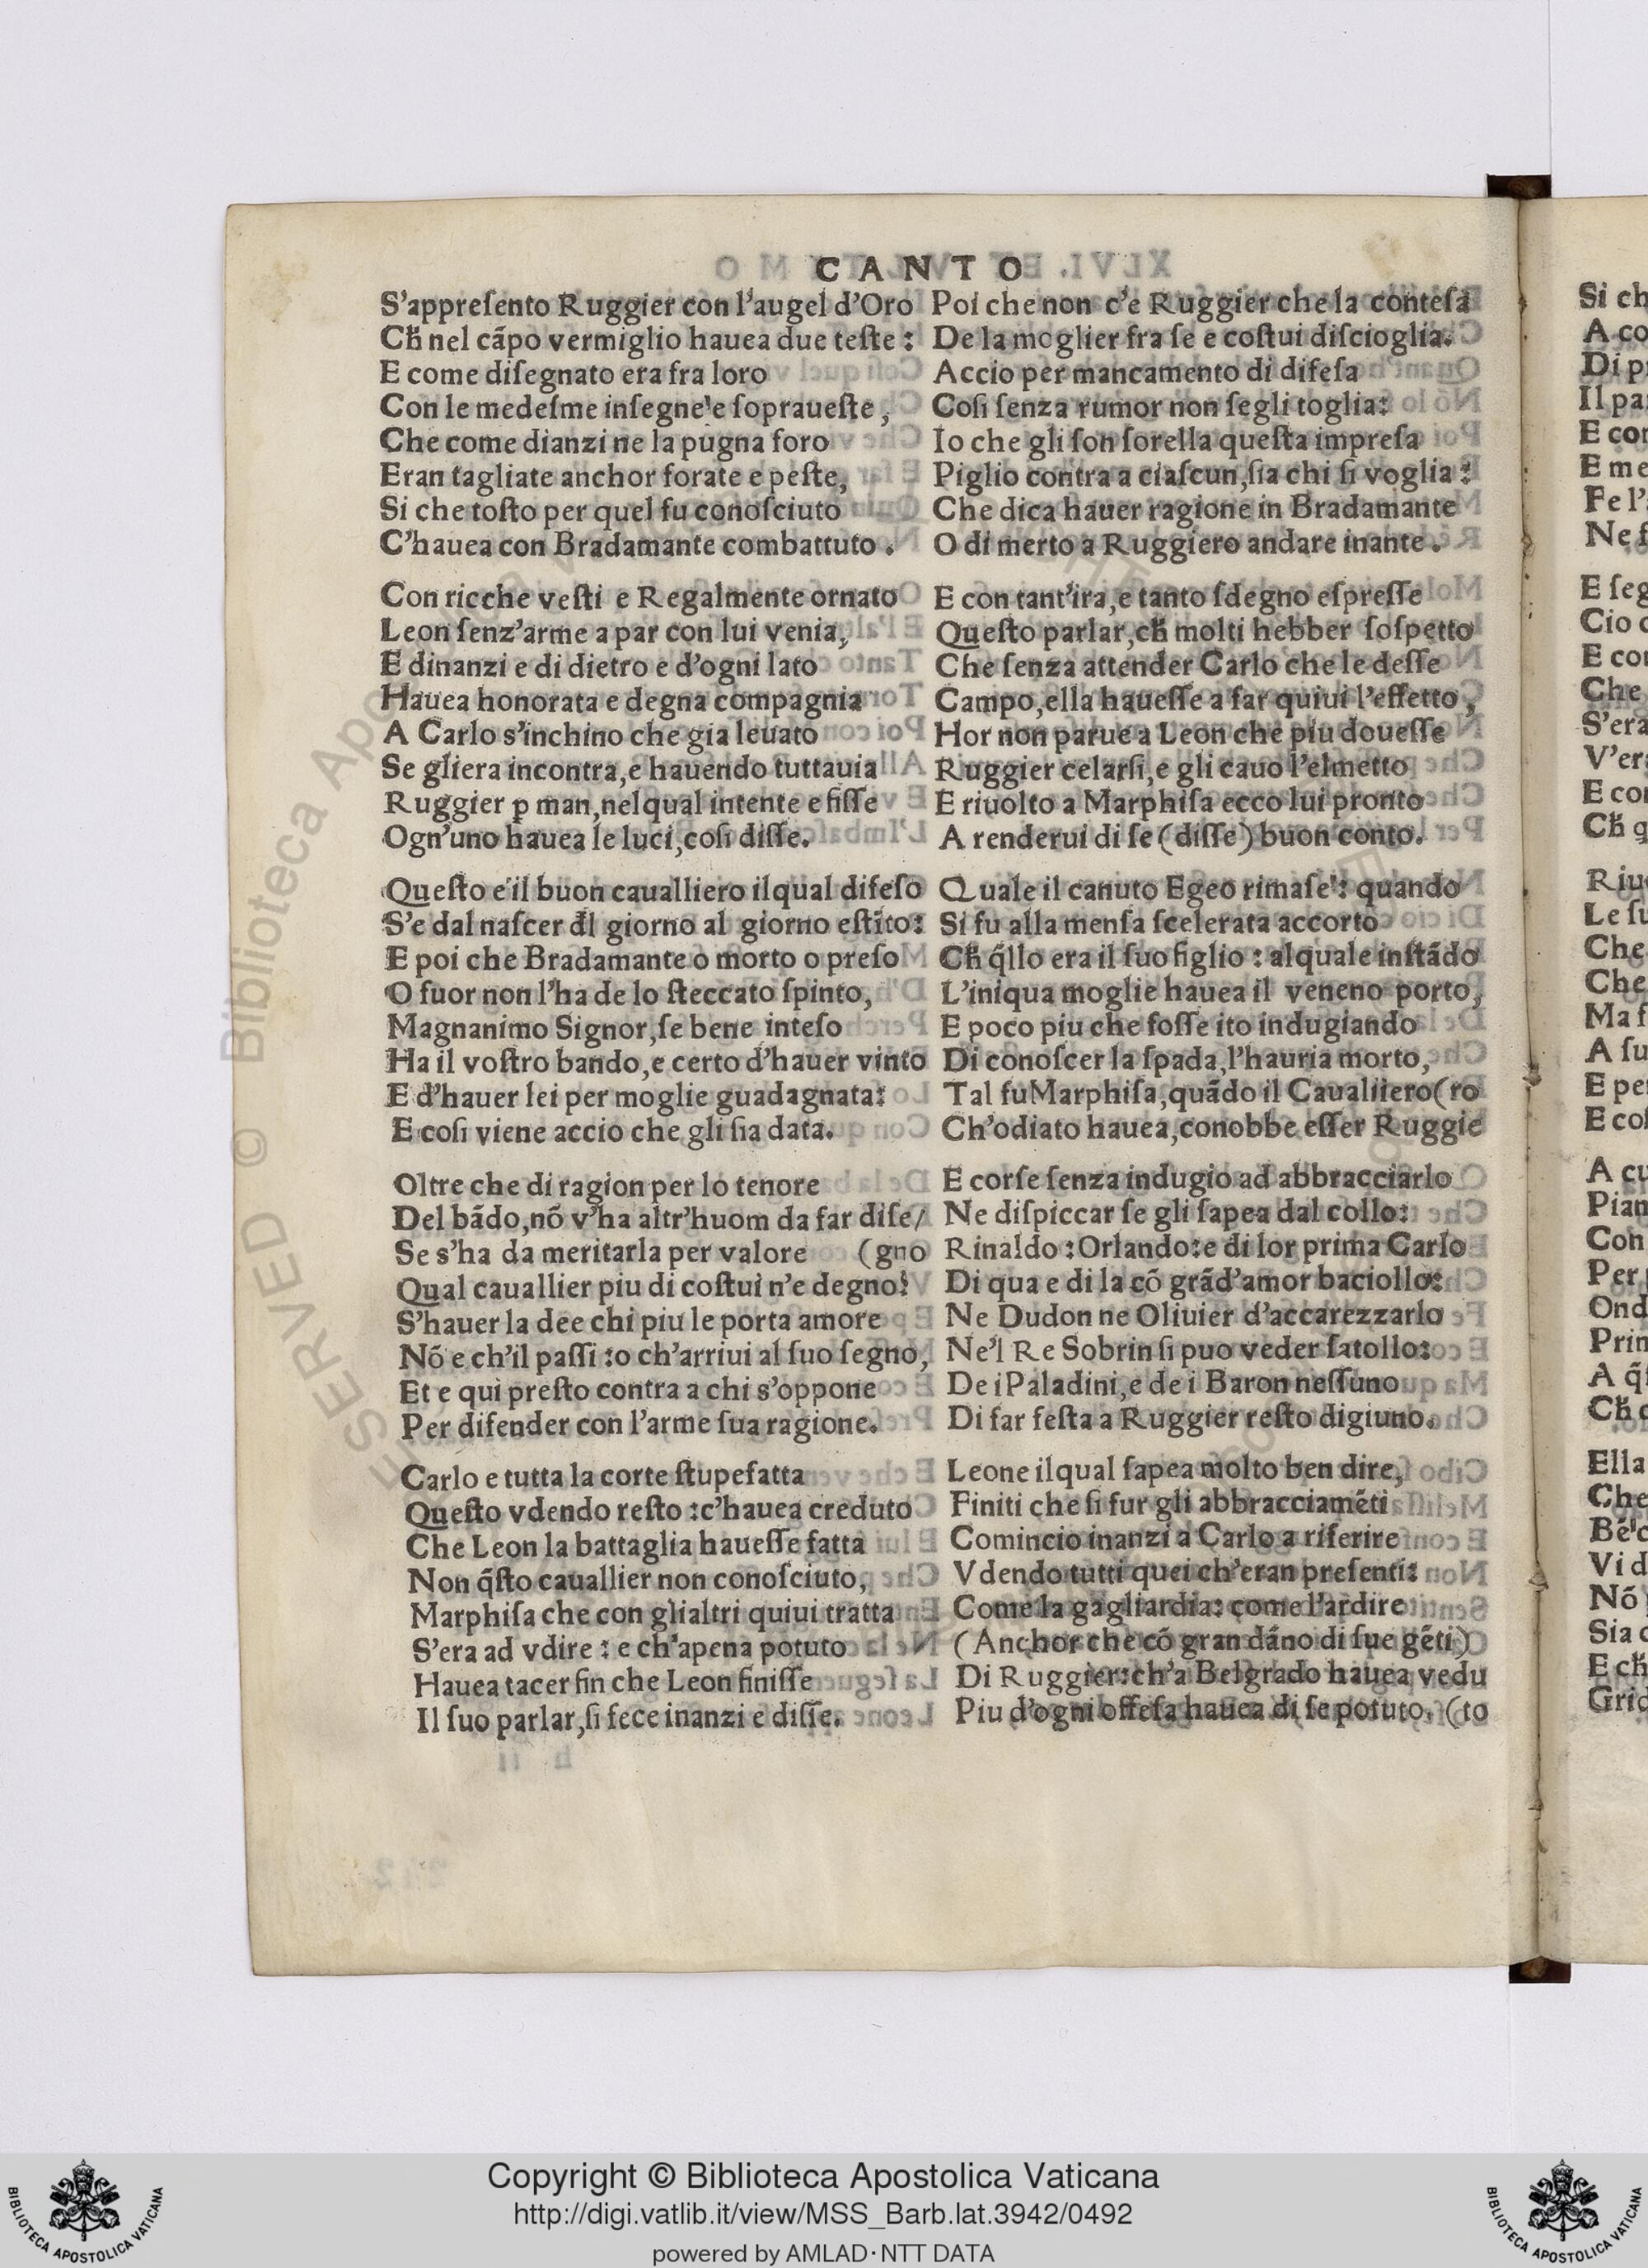 CANTO
S'appreſento Ruggier con l'augel d'Oro
Cħ nel cãpo vermiglio hauea due teſte:
E come diſegnato era fra loro
Con le medeſme inſegne'e ſopraueſte,
Che come dianzi ne la pugna foro
Eran tagliate anchor forate e peſte,
Si che toſto per quel fu conoſciuto
C'hauea con Bradamante combattuto.
Con ricche veſti e Regalmente ornato
Leon ſenz'arme a par con lui venia,
E dinanzi e di dietro e d'ogni lato
Hauea honorata e degna compagnia
A Carlo s'inchino che gia leuato
Se gliera incontra, e hauendo tuttauia
Ruggier ꝑ man, nelqual intente e fiſſe
Ogn'uno hauea le luci, coſi diſſe.
Queſto e'il buon caualliero ilqual difeſo
S'e dal naſcer đl giorno al giorno eſtĩto:
E poi che Bradamante o morto o preſo
O fuor non l'ha de lo ſteccato ſpinto,
Magnanimo Signor, ſe bene inteſo
Ha il voſtro bando, e certo d'hauer vinto
E d'hauer lei per moglie guadagnata:
E coſi viene accio che gli ſia data.
Oltre che di ragion per lo tenore
Del bãdo, nõ v'ha altr'huom da far diſe/
Se s'ha da meritarla per valore (gno
Qual cauallier piu di coſtui n'e degno?
S'hauer la dee chi piu le porta amore
Nõ e ch'il paſſi: o ch'arriui al ſuo ſegno,
Et e qui preſto contra a chi s'oppone
Per difender con l'arme ſua ragione.
Carlo e tutta la corte ſtupefatta
Queſto vdendo reſto: c'hauea creduto
Che Leon la battaglia haueſſe fatta
Non q̃ſto cauallier non conoſciuto,
Marphiſa che con glialtri quiui tratta
S'era ad vdire: e ch'apena potuto
Hauea tacer fin che Leon finiſſe
Il ſuo parlar, ſi fece inanzi e diſſe.
Poi che non c'e Ruggier che la conteſa
De la moglier fra ſe e coſtui diſcioglia.
Accio per mancamento di difeſa
Coſi ſenza rumor non ſegli toglia:
Io che gli ſon ſorella queſta impreſa
Piglio contra a ciaſcun, ſia chi ſi voglia:
Che dica hauer ragione in Bradamante
O di merto a Ruggiero andare inante.
E con tant'ira, e tanto ſdegno eſpreſſe
Queſto parlar, cħ molti hebber ſoſpetto
Che ſenza attender Carlo che le deſſe
Campo, ella haueſſe a far quiui l'effetto,
Hor non parue a Leon che piu doueſſe
Ruggier celarſi, e gli cauo l'elmetto
E riuolto a Marphiſa ecco lui pronto
A renderui di ſe (diſſe) buon conto.
Quale il canuto Egeo rimaſe': quando
Si fu alla menſa ſcelerata accorto
Cħ q̃llo era il ſuo figlio: alquale inſtãdo
L'iniqua moglie hauea il veneno porto,
E poco piu che foſſe ito indugiando
Di conoſcer la ſpada, l'hauria morto,
Tal fu Marphiſa, quãdo il Caualiiero (ro
Ch'odiato hauea, conobbe eſſer Ruggie
E corſe ſenza indugio ad abbracciarlo
Ne diſpiccar ſe gli ſapea dal collo:
Rinaldo: Orlando: e di lor prima Carlo
Di qua e di la cõ grãd'amor baciollo:
Ne Dudon ne Oliuier d'accarezzarlo
Ne'l Re Sobrin ſi puo veder ſatollo:
De i Paladini, e de i Baron neſſuno
Di far feſta a Ruggier reſto digiuno.
Leone ilqual ſapea molto ben dire,
Finiti che ſi fur gli abbracciamẽti
Comincio inanzi a Carlo a riferire
Vdendo tutti quei ch'eran preſenti:
Come la gagliardia: come l'ardire
(Anchor che cõ gran dãno di ſue gẽti)
Di Ruggier: ch'a Belgrado hauea vedu
Piu d'ogni offeſa hauea di ſe potuto. (to
Si ch
A co
Di p
Il pa
E con
E me
Fe l'
Ne ſ
E ſeg
Cio c
E co
Che
S'era
V'er
E co
Cħ q
Riu
Le ſu
Che
Che
Ma f
A ſu
E pe
E coſ
A cu
Pian
Con
Per
Ond
Prin
A q̃
Cħ c
Ella
Che
Bẽ'c
Vi d
Nõ
Sia c
E cħ
Grid
© Biblioteca Apo
ESERVED
Copyright © Biblioteca Apostolica Vaticana
http://digi.vatlib.it/view/MSS_Barb.lat.3942/0492
powered by AMLAD·NTT DATA
BIBLIOTECA APOSTOLICA VATICANA
BIBLIOTECA APOSTOLICA VATICANA